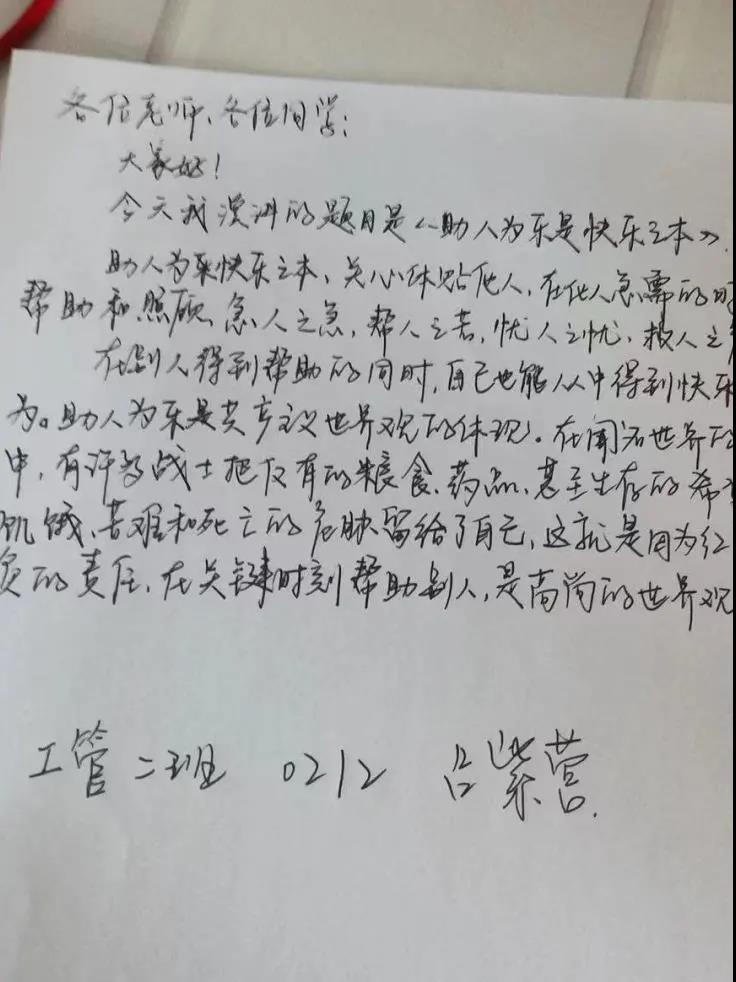 各位老师、各位同学:
大家好!
今天我演讲的题目是《助人为乐是快乐之本》.
助人为乐快乐之本、关心体贴他人,在他人急需的时
帮助和照顾、急人之急,帮人之苦,忧人之忧、救人之
在别人得到帮助的同时,自己也能从中得到快乐
为。助人为乐是共产主义世界观的体现。在闻名世界的
中,有许多战士把仅有的粮食、药品、甚至生存的希
饥饿、苦难和死亡的危胁留给了自己,这就是因为红
负的责任、在关键时刻帮助别人,是高尚的世界观
工管二班 0212 吕紫营.